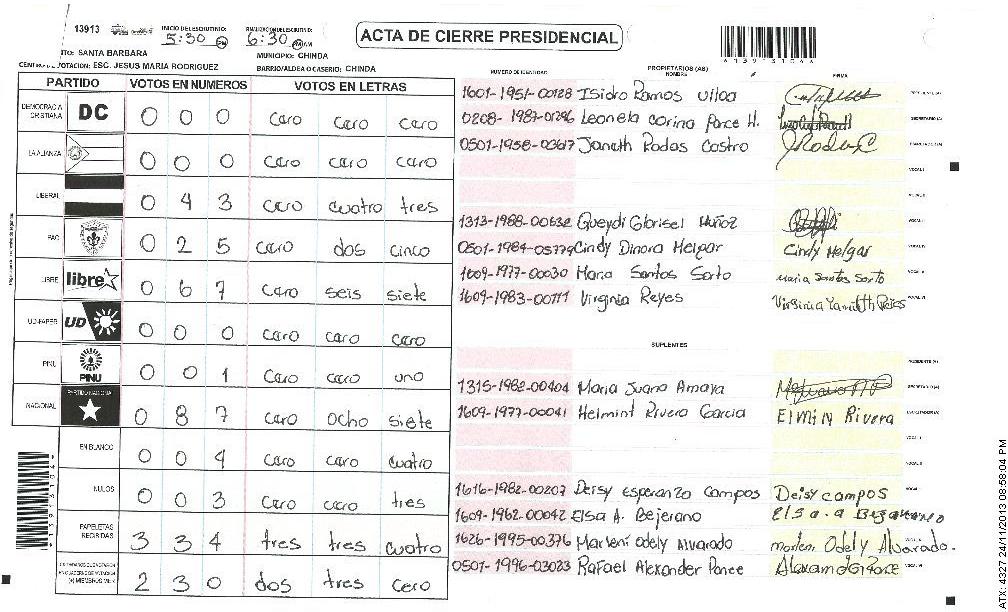 13913
INICIO DEL ESCRUTINIO: 5:30 PM
FINALIZACION DEL ESCRUTINIO: 6:30 PM AM
ACTA DE CIERRE PRESIDENCIAL
TO: SANTA BARBARA
MUNICIPIO: CHINDA
VOTACION: ESC. JESUS MARIA RODRIGUEZ
BARRIO/ALDEA O CASERIO: CHINDA
PARTIDO VOTOS EN NUMEROS VOTOS EN LETRAS
DEMOCRACIA CRISTIANA DC 0 0 0 caro caro caro
LA ALIANZA 0 0 0 caro caro caro
LIBERAL 0 4 3 caro cuatro tres
PAC 0 2 5 caro dos cinco
LIBRE libre 0 6 7 caro seis siete
UD-FAPER UD 0 0 0 caro caro caro
PINU PINU 0 0 1 caro caro uno
NACIONAL PARTIDO NACIONAL 0 8 7 caro ocho siete
EN BLANCO 0 0 4 caro caro cuatro
NULOS 0 0 3 caro caro tres
PAPELETAS RECIBIDAS 3 3 4 tres tres cuatro
2 3 0 dos tres cero
NUMERO DE IDENTIDAD PROPIETARIOS (AS) NOMBRE FIRMA
1601-1951-00128 Isidro Ramos Ulloa
0208-1987-01286 Leonela Corina Ponce H.
0501-1958-03617 Janeth Rodas Castro J Rodas C
1313-1988-00632 Queydi Glorisel Muñoz
0501-1984-05779 Cindy Dinora Helgar Cindy Helgar
1609-1977-00030 Maria Santos Sorto maria Santos Sorto
1609-1983-00111 Virginia Reyes Virginia Yamileth Reies
SUPLENTES
1315-1982-00404 Maria Juana Amaya
1609-1977-00041 Helmint Rivera Garcia Elmily Rivera
1616-1982-00207 Deisy Esperanzo Campos Deisy campos
1609-1962-00042 Elsa A. Bejerano
1626-1995-00376 Marleni Odely Alvarado Odely Alvarado.
0501-1996-03023 Rafael Alexander Ponce Alexander Ponce
ATX: 4327 24/11/2013 08:58:04 PM